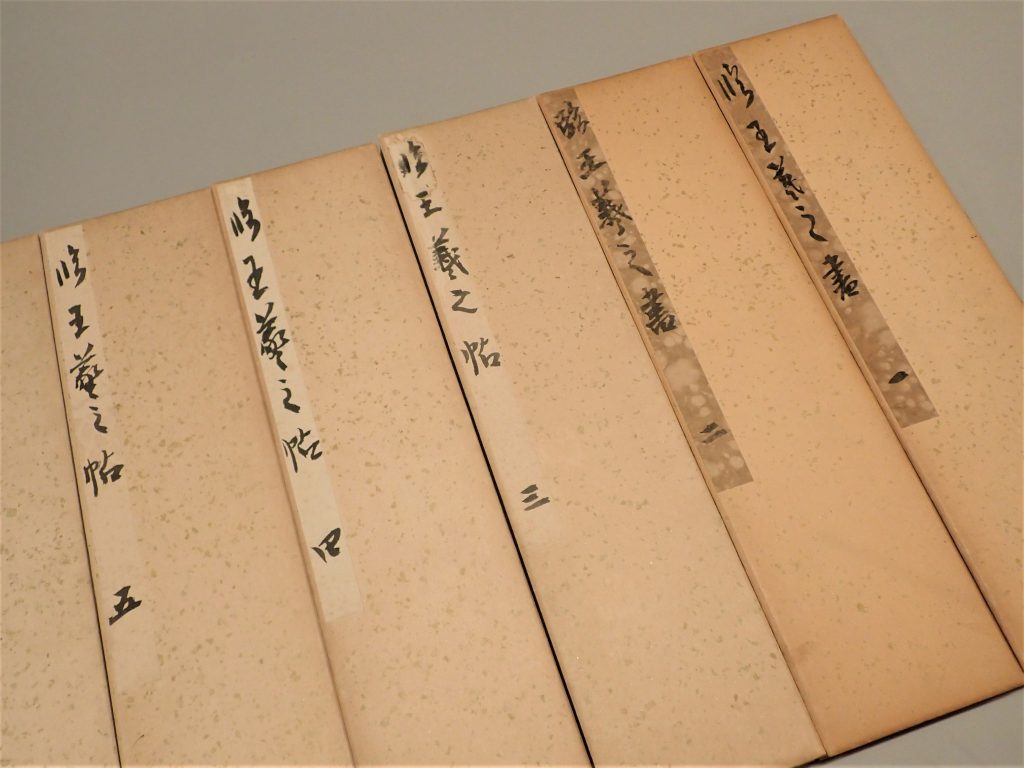 臨王羲之書 一
臨王羲之書 二
臨王羲之帖 三
臨王羲之帖 四
臨王羲之帖 五